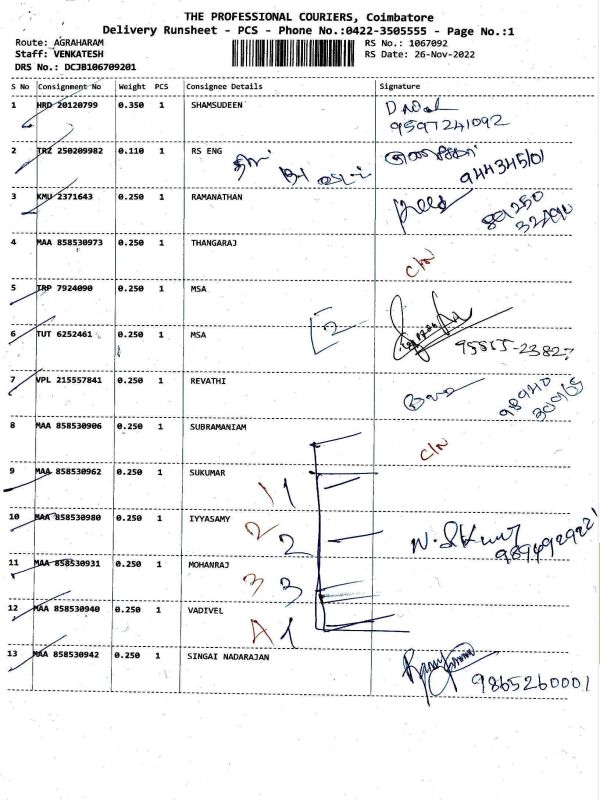 THE PROFESSIONAL COURIERS, Coimbatore
Delivery Runsheet - PCS - Phone No.:0422-3505555 - Page No.:1
Route: AGRAHARAM RS No.: 1067092
Staff: VENKATESH RS Date: 26-Nov-2022
DRS No.: DCJB106709201
S No Consignment No Weight PCS Consignee Details Signature
1 HRD 20120799 0.350 1 SHAMSUDEEN
9597241092
2 TRZ 250209982 0.110 1 RS ENG
944345101
3 KMU 2371643 0.250 1 RAMANATHAN
89250
4 MAA 858530973 0.250 1 THANGARAJ C/N
5 TRP 7924090 0.250 1 MSA
2
6 TUT 6252461 0.250 1 MSA
95855-23827
7 VPL 215557841 0.250 1 REVATHI
98940
30965
8 MAA 858530906 0.250 1 SUBRAMANIAM C/N
9 MAA 858530962 0.250 1 SUKUMAR
1 1
10 MAA 858530980 0.250 1 IYYASAMY
2 2
11 MAA 858530931 0.250 1 MOHANRAJ
3 3
12 MAA 858530940 0.250 1 VADIVEL
1
13 MAA 858530942 0.250 1 SINGAI NADARAJAN
9865260001